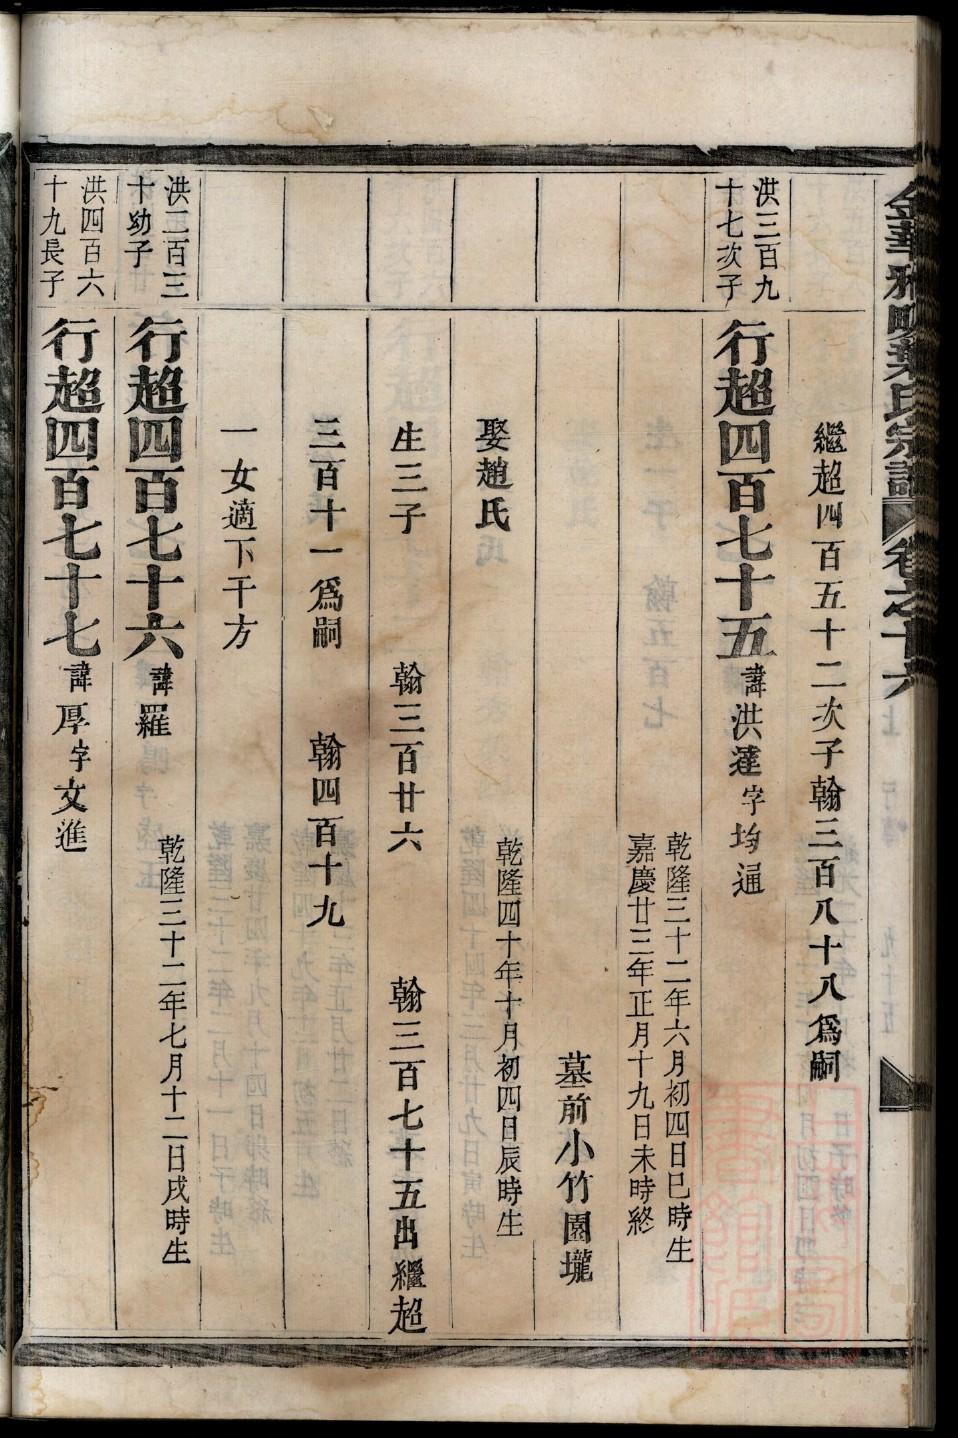 金華雅畈葉氏宗譜 卷之十六
繼超四百五十二次子翰三百八十八爲嗣
洪三百九
十七次子
行超四百七十五 諱洪蓬字均通
乾隆三十二年六月初四日巳時生
嘉慶廿三年正月十九日未時終
墓前小竹園壠
娶趙氏
乾隆四十年十月初四日辰時生
生三子 翰三百廿六 翰三百七十五出繼超
三百十一爲嗣 翰四百十九
一女適下干方
洪三百三
十幼子
行超四百七十六 諱羅
乾隆三十二年七月十二日戌時生
洪四百六
十九長子
行超四百七十七 諱厚字文進